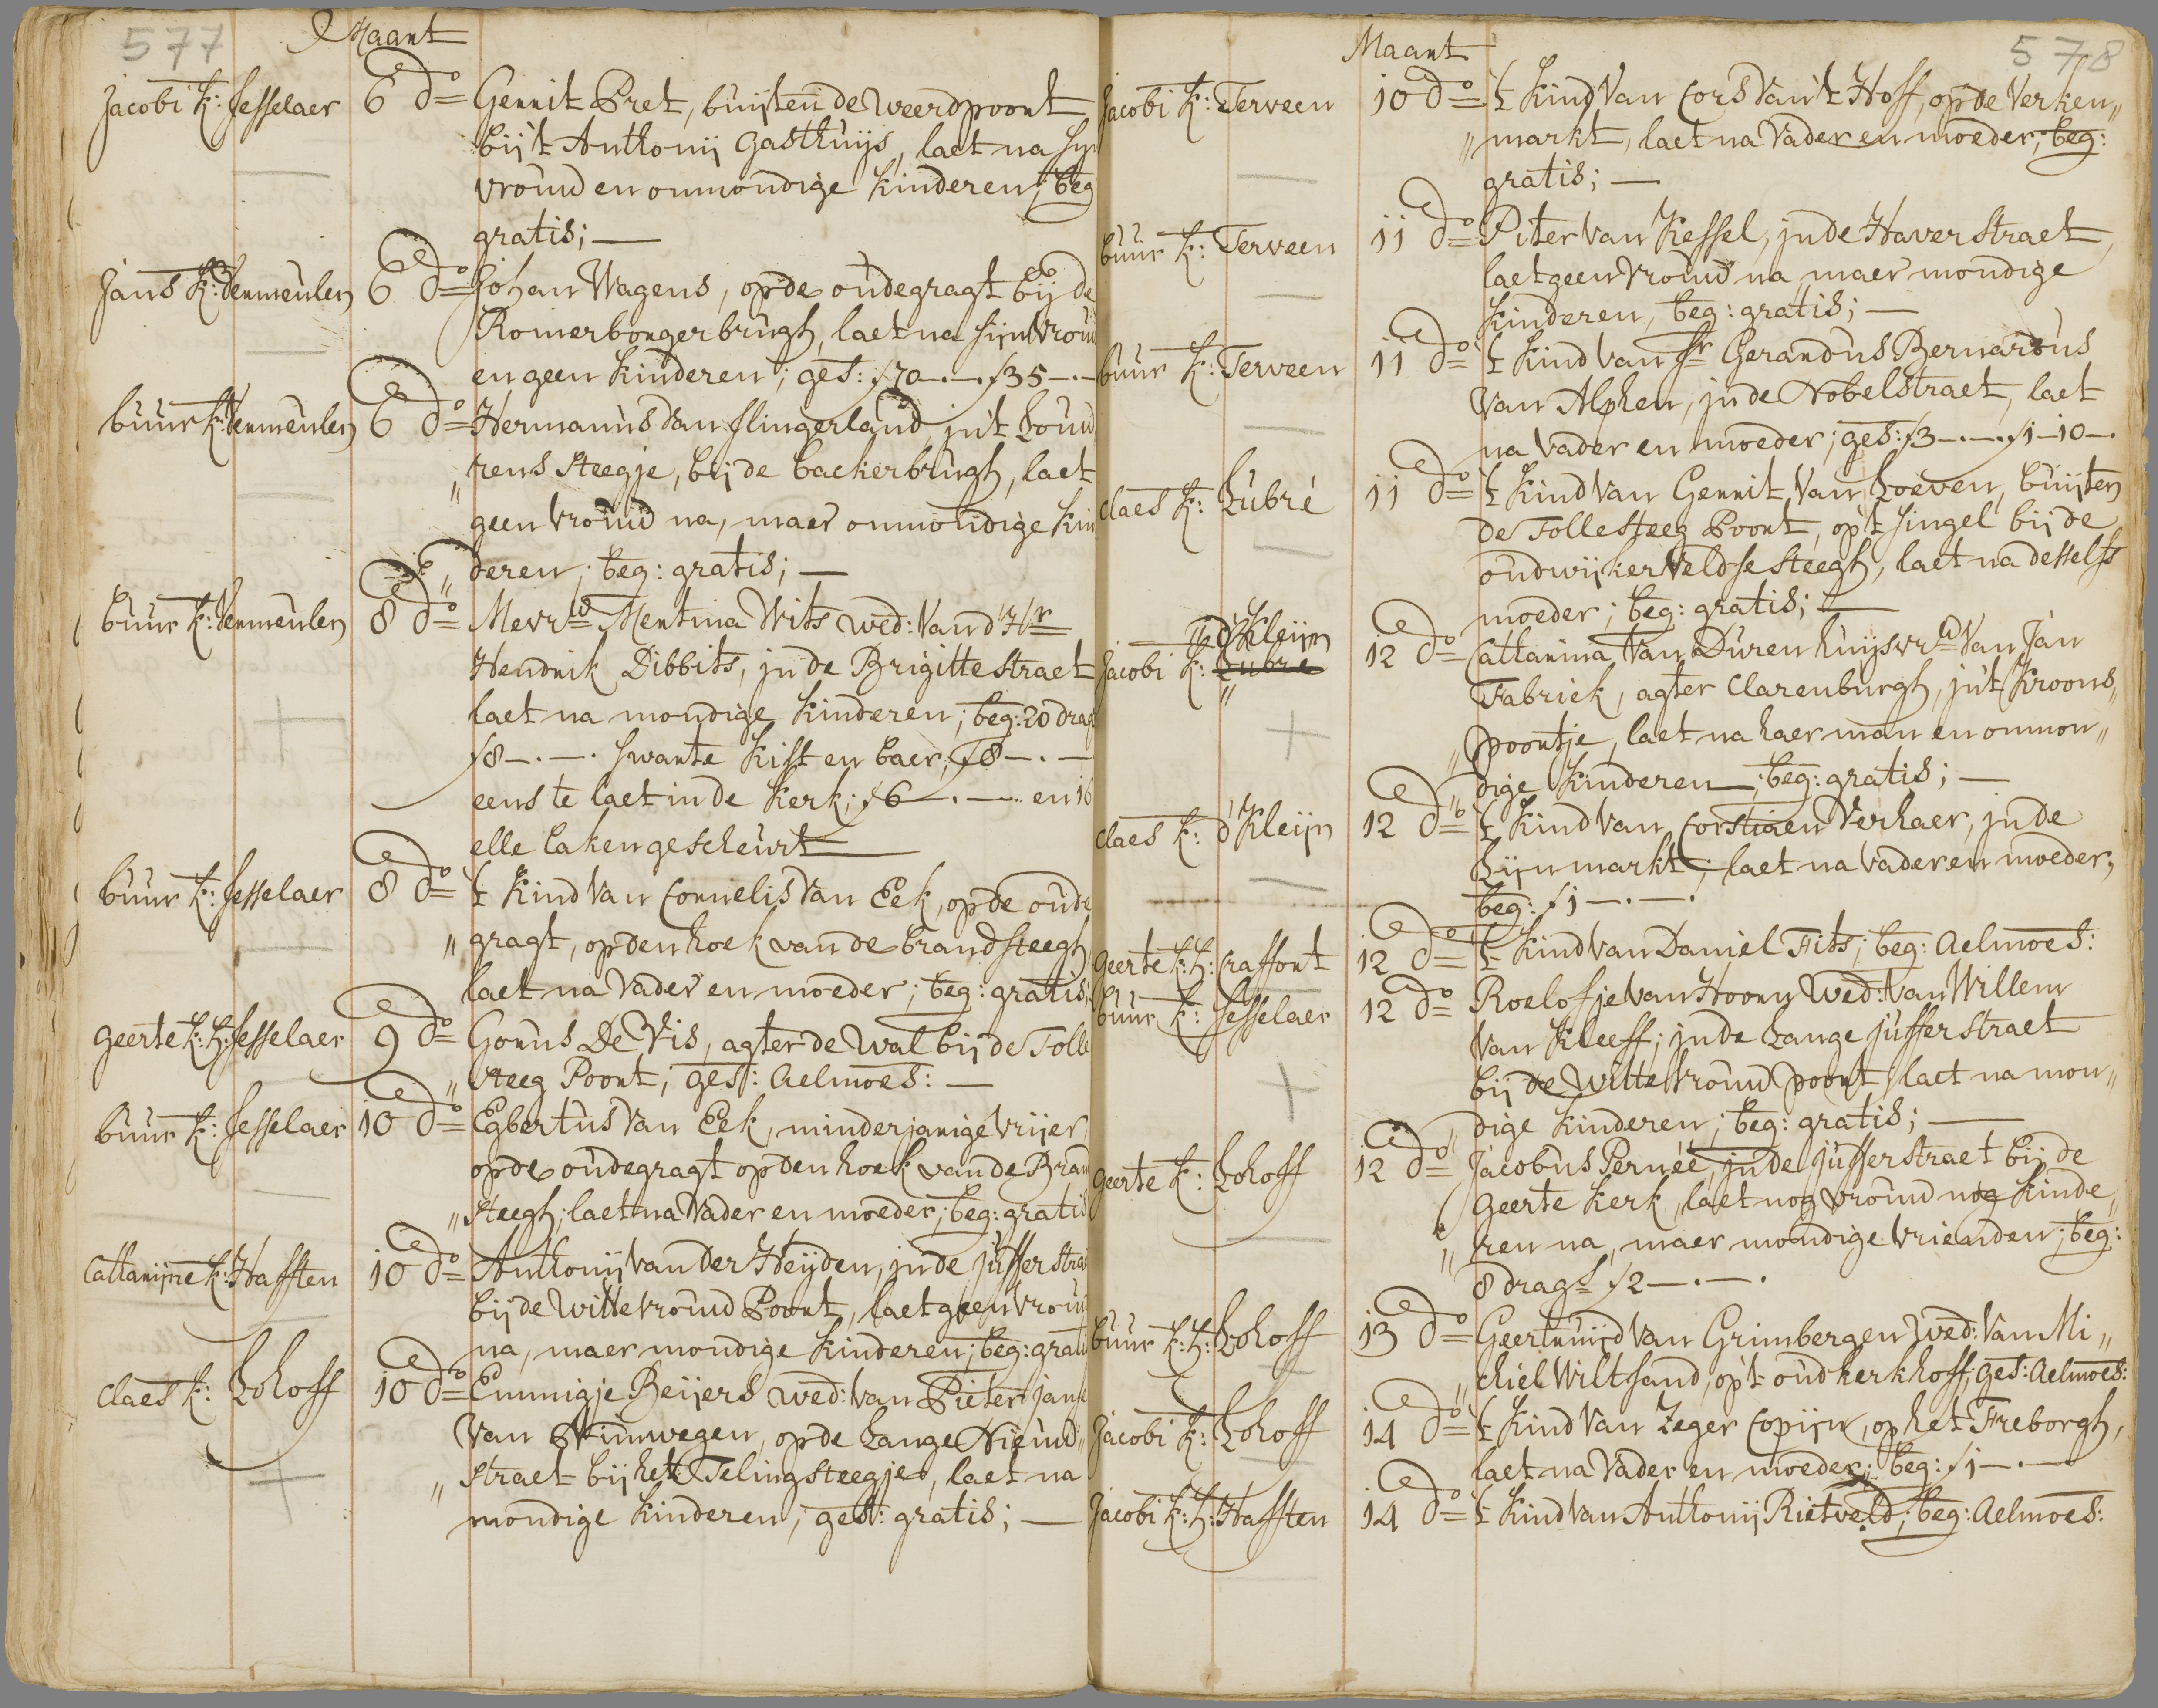 577
Maant
Jacobi k: Jesselaer 6 do= Gerrit Pret, buijten de weerdpoort
bij 't Anthonij Gasthuijs, laet na sijn
vrouw en onmondige kinderen; beg
gratis; —
Jans k: Vermeulen 6 do= Johan Wagens, op de oudegragt bij de
Romerborgerbrugh, laet na sijn vrouw
en geen kinderen; ges: f70-.-. f35-.-
buur k: Vermeulen 6 do= Hermanus van Slingerland, in't Louw
" rens steegje, bij de backerbrugh, laet
geen vrouw na, maer onmondige kin
" deren; beg: gratis; —
buur k: Vermeulen 8 do= Mevrw Mentina Wits wed: van d'Hr
Hendrik Dibbits, in de Brigittestraet
laet na mondige kinderen; beg: 20 drag
f8-.-. swarte kist en baer, f8-.-
eens te laet in de kerk; f6-.-. en 16
elle laken gescheurt
buur k: Jesselaer 8 do= 't Kind van Cornelis van Eek, op de oude
" gragt, op den hoek van de brandsteegh
laet na vader en moeder; beg: gratis;
Geerte k: h: Jesselaer 9 do= Gorus De Vis, agter de wal bij de Tolle
" steeg Poort; ges: Aelmoes: —
buur k: Jesselaer 10 do= Egbertus van Eek, minderjarige vrijer,
op de oudegragt op den hoek van de Bran
" steegh; laet na vader en moeder; beg: gratis
Cattarijne k: Hafften 10 do= Anthonij van der Heijden, in de Jufferstrae
bij de Wittevrouw Poort, laet geen vrouw
na, maer mondige kinderen; beg: gratis
Claes k: Lohoff 10 do= Emmigje Beijers wed: van Pieter Janse
van Nimwegen, op de Lange Nieuw"
" straet bij het Telingsteegje, laet na
mondige kinderen; gest: gratis; —
578
Maant
Jacobi k: Terveen 10 do= 't Kind van Cors van 't Hoff, op de Verken"
" markt, laet na vader en moeder; beg:
gratis; —
buur k: Terveen 11 do= Piter van Kessel, in de Haverstraet,
laet geen vrouw na maer mondige
kinderen, beg: gratis; —
buur k: Terveen 11 do= 't Kind van Sr Gerardus Bernardus
van Alphen, in de Nobelstraet, laet
na vader en moeder; ges: f3-.-. f1-10-.
Claes k: Lubré 11 do= 't Kind van Gerrit van Loeven, buijten
de Tollesteeg Poort, op 't singel bij de
oudwijkerveldse steegh, laet na desselfs
moeder; beg: gratis; —
d'Kleijn
Jacobi k: Lubre 12 do= Cattarina van Duren huijsvrw van Jan
Fabriek, agter Clarenburgh, in't Kroons"
" poortje, laet na haer man en onmon"
" dige kinderen; beg: gratis; —
Claes k: d'Kleijn 12 do= 't Kind van Corstiaen Verhaer, in de
Lijnmarkt; laet na vader en moeder;
beg: f1-.-.
Geerte k: h: Craffort 12 do= 't Kind van Daniel Fits; beg: Aelmoes:
buur k: Jesselaer 12 do= Roelofje van Hoorn wed: van Willem
van Kleeff; in de Lange Jufferstraet
bij de Wittevrouw poort, laet na mon"
" dige kinderen; beg: gratis; —
Geerte k: Lohoff 12 do= Jacobus Pernéé, in de Jufferstraet bij de
Geerte kerk, laet nog vrouw nog kinde"
" ren na, maer mondige vrienden; beg:
8 dragt f2-.-.
buur k: h: Lohoff 13 do= Geertruijd van Grimbergen wed: van Mi"
" chiel Wiltsand, op't oud kerkhoff, ges: Aelmoes:
Jacobi k: Lohoff 14 do= 't Kind van Zeger Copijn, op het Freborgh,
laet na vader en moeder; beg: f1-.-
Jacobi k: h: Hafften 14 do= 't Kind van Anthonij Rietveld; beg: Aelmoes: